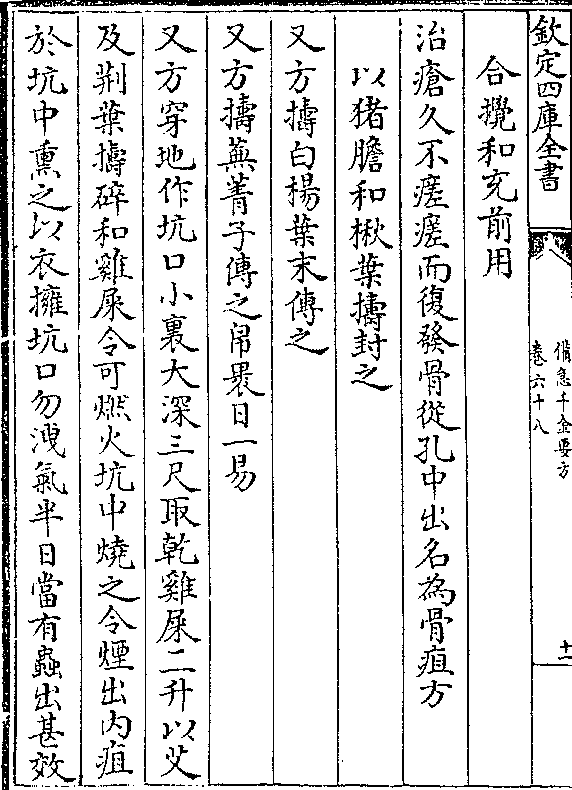 欽定四庫全書
備急千金要方
卷六十八
十一
合攪和充前用
治瘡久不瘥瘥而復發骨從孔中出名為骨疽方
以猪膽和楸葉擣封之
又方擣白楊葉末傅之
又方擣蕪菁子傅之帛褁日一易
又方穿地作坑口小裏大深三尺取乾雞屎二升以艾
及荆葉擣碎和雞屎令可燃火坑中燒之令煙出内疽
於坑中熏之以衣擁坑口勿洩氣半日當有蟲出甚效